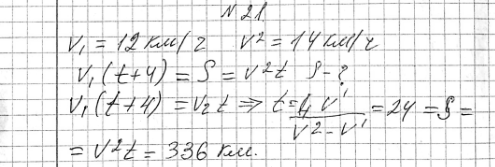 N 21
V₁ = 12 км/ч V² = 14 км/ч
V₁(t+4) = S = V²t S - ?
V₁(t+4) = V₂t ⇒ t = 4V¹/(V² - V¹) = 24 = S =
= V²t = 336 км.